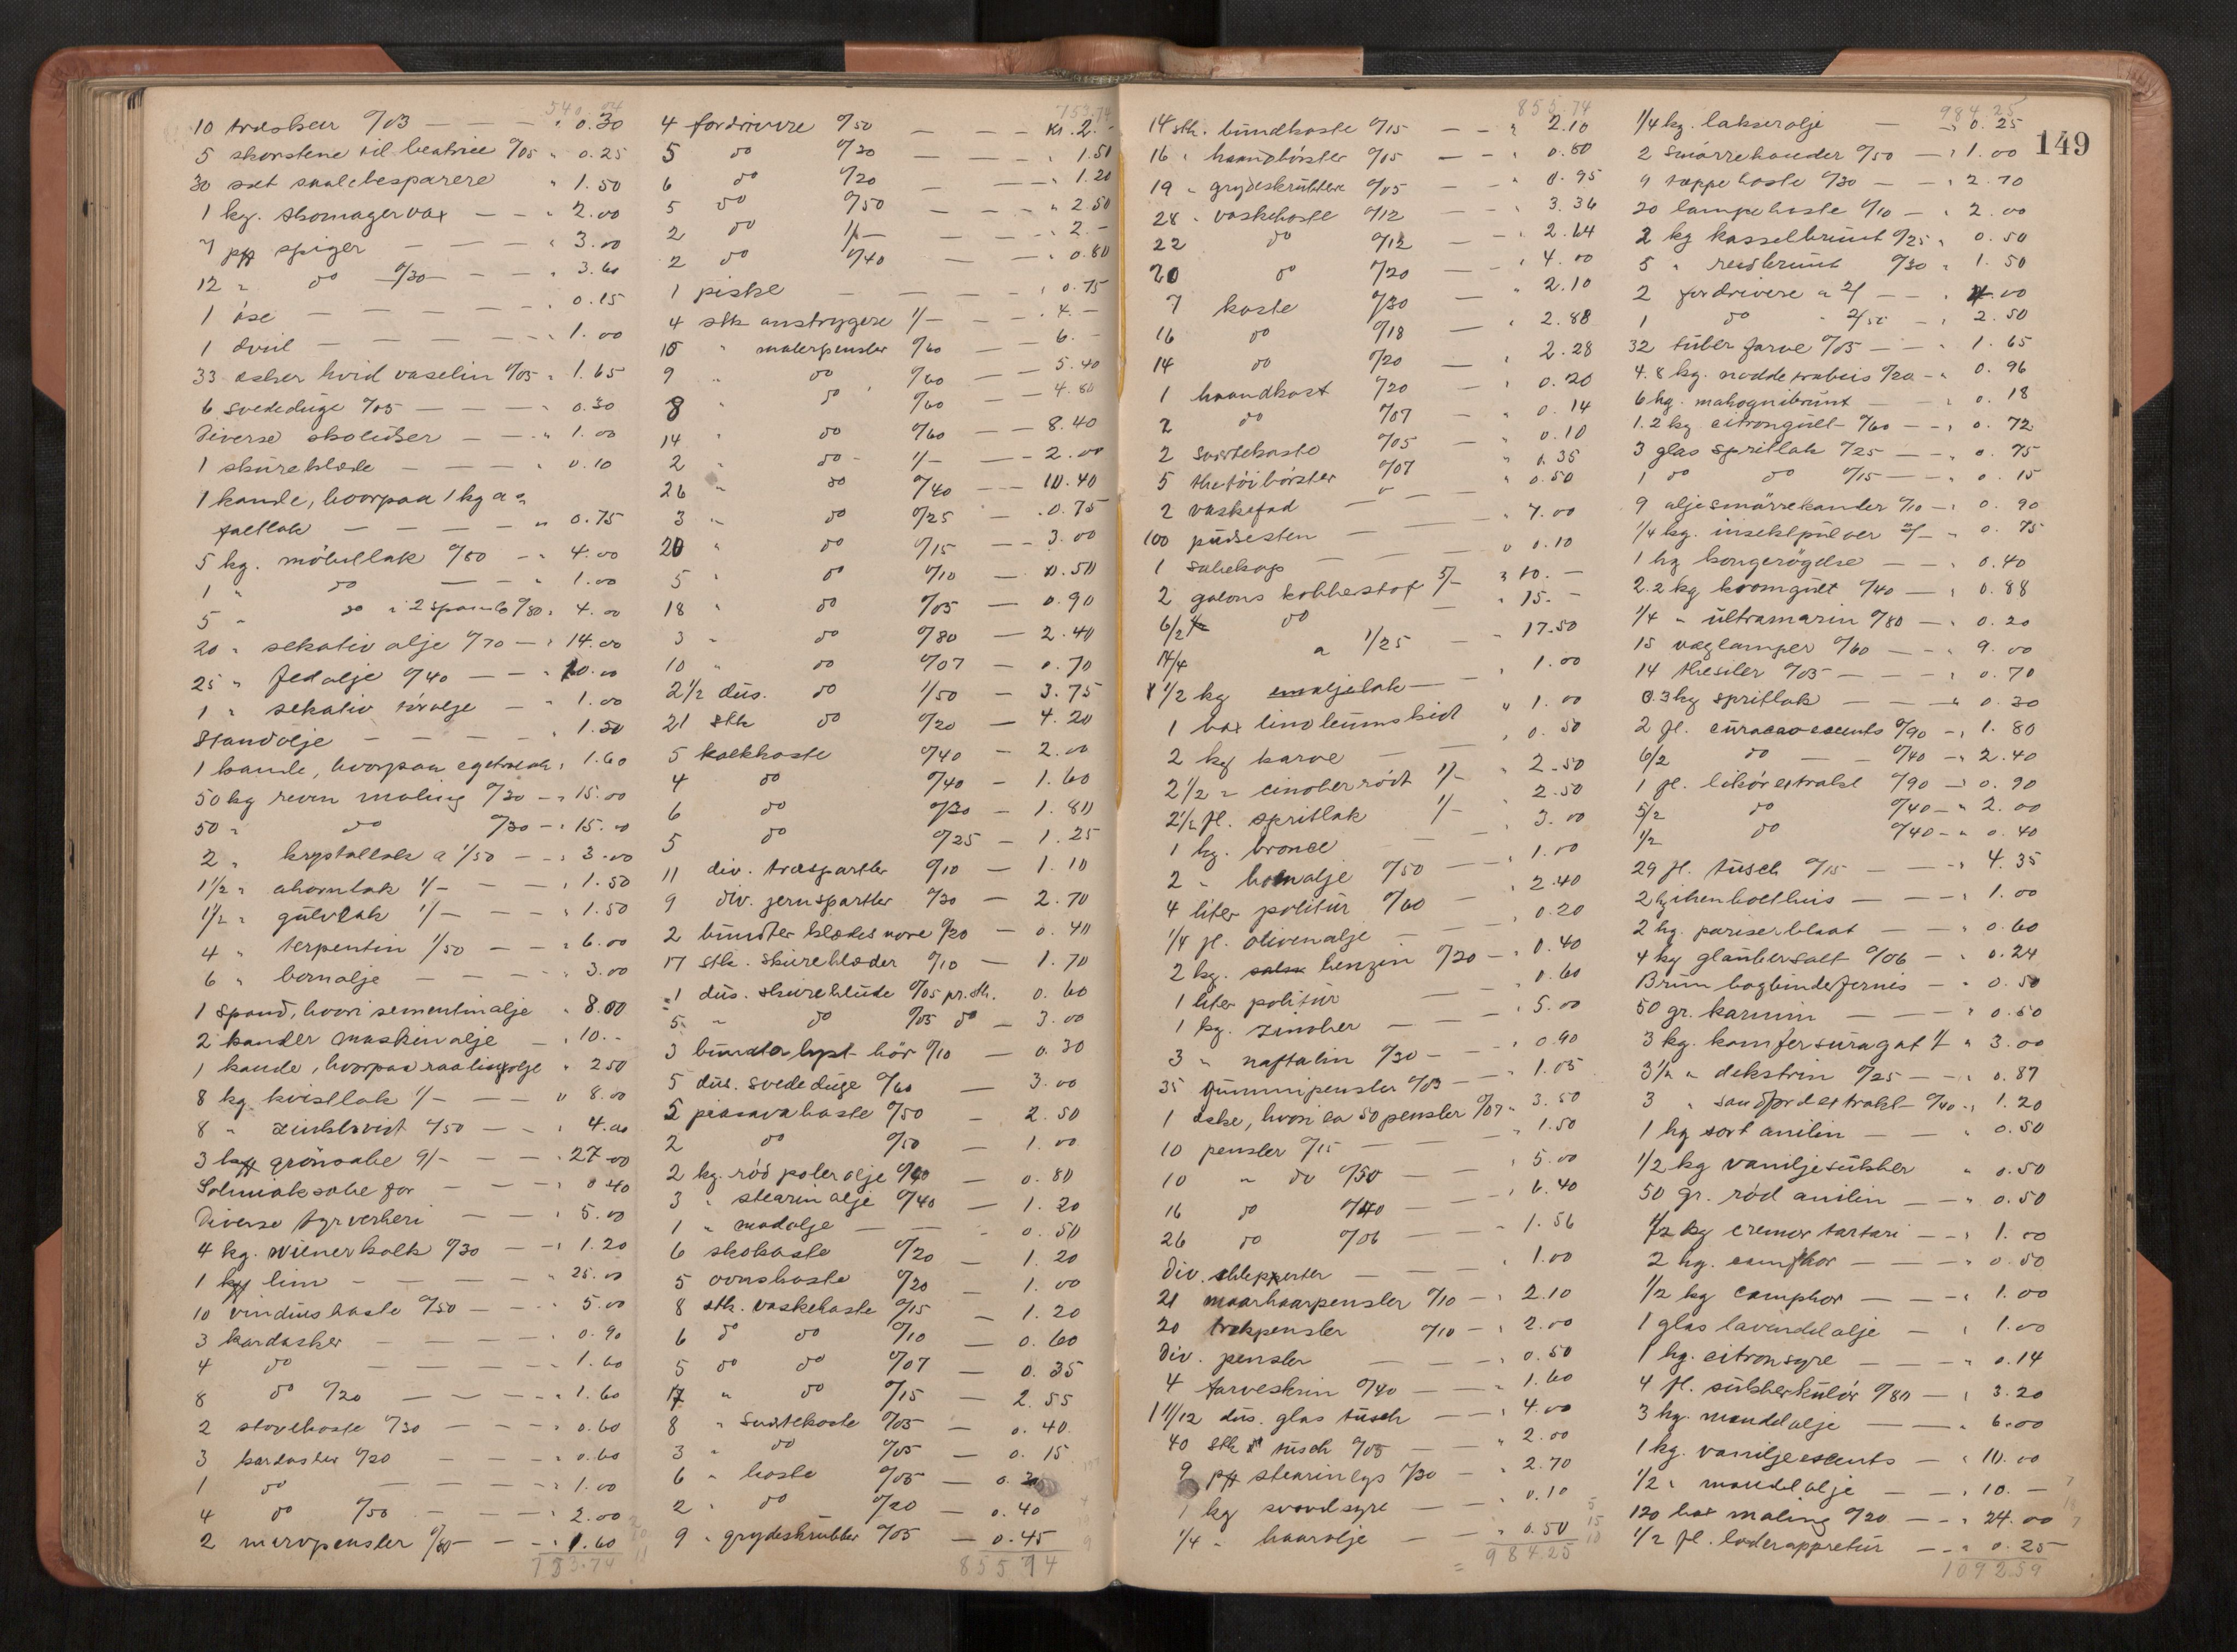 540.04
10 træskeer 0/03 — — — " 0.30
5 skorstene til beatrice 0/05 " 0.25
30 set saalebesparere " 1.50
1 kg. skomagervax — — " 2.00
7 pk spiger — — — " 3.00
12 " do 0/30 — — " 3.60
1 öse — — — — — " 0.15
1 dviil — — — — — " 1.00
33 æsker hvid vaselin 0/05 " 1.65
6 svededuge 0/05 — — — " 0.30
Diverse skolidser — — " 1.00
1 skureklæde — — — " 0.10
1 kande, hvorpaa 1 kg a a
faellak — — — — " 0.75
5 kg. möbellak 0/80 — " 4.00
1 " do — — " 1.00
5 " do i 2 spand 0/80 " 4.00
20 " sekativ olje 0/70 — " 14.00
25 " fedolje 0/40 — — " 10.00
1 " sekativ törolje — " 1.00
Standolje — — — — " 1.50
1 kande, hvorpaa egetræslak " 1.60
50 kg reven maling 0/30 — " 15.00
50 " do 0/30 — " 15.00
2 " krystallak a 1/50 — — " 3.00
1 1/2 " ahornlak 1/- — — " 1.50
1 1/2 " gulvlak 1/- — — " 1.50
4 " terpentin 1/50 — — " 6.00
6 " bernolje — — — " 3.00
1 spand, hvori sementinolje " 8.00
2 kander maskinolje — " 10.-
1 kande, hvorpaa raalinolje " 2.50
8 kg kvistlak 1/- — — " 8.00
8 " zinkhvidt 0/50 — — " 4.00
3 kg grönsæbe 9/- — — " 27.00
Solmiaksæbe for — — " 0.40
Diverse fyrverkeri — — " 5.00
4 kg. wienerkalk 0/30 — — " 1.20
1 kg lim — — — — " 25.00
10 vinduskoste 0/50 — — " 5.00
3 kardasker — — — — " 0.90
4 do — — — — " 1.60
8 do 0/20 — — — " 1.60
2 stovekoste 0/30 — — — " 0.60
3 kardasker 0/20 — — " 0.60
1 do — — — — " 1.00
4 do 0/50 — — — " 2.00
2 marvpensler 0/80 — — " 1.60
753.74
753.74
4 fordrivere 0/50 — — — kr. 2.-
5 do 0/30 — — — " 1.50
6 do 0/20 — — — " 1.20
5 do 0/50 — — — " 2.50
2 do 1/- — — — " 2.-
2 do 0/40 — — " 0.80
1 piske — — — — " 0.75
4 stk anstrygere 1/- — — " 4.-
10 " malerpensler 0/60 — — 6.-
9 " do 0/60 — — 5.40
8 " do 0/60 — — 4.80
14 " do 0/60 — — 8.40
2 " do 1/- — — 2.00
26 " do 0/40 — — 10.40
3 " do 0/25 — 0.75
20 " do 0/15 — — 3.00
5 " do 0/10 — 0.50
18 " do 0/05 — 0.90
3 " do 0/80 — 2.40
10 " do 0/07 — 0.70
2 1/2 dus. do 1/50 — 3.75
21 stk do 0/20 — 4.20
5 kalkkoste 0/40 — 2.00
4 do 0/40 — 1.60
6 do 0/30 — 1.80
5 do 0/25 — 1.25
11 div. træspartler 0/10 — 1.10
9 div. jernspartler 0/30 — 2.70
2 bundter klædesnore 0/20 — 0.40
17 stk. skureklæder 0/10 — 1.70
1 dus. skureklude 0/05 pr. stk. 0.60
5 " do 0/05 do — 3.00
3 bundter lyst hör 0/10 — 0.30
5 dus. svededuge 0/60 — 3.00
5 piasavakoste 0/50 — 2.50
2 do 0/50 — 1.00
2 kg. röd polerolje 0/40 — 0.80
3 " stearinolje 0/40 — 1.20
1 " madolje — — 0.50
6 skokoste 0/20 — 1.20
5 ovnskoste 0/20 — 1.00
8 stk. vaskekoste 0/15 — 1.20
6 do do 0/10 — 0.60
5 do do 0/07 — 0.35
17 " do 0/15 — 2.55
8 " Svertekoste 0/05 — 0.40
3 " do 0/05 — 0.15
6 " koste 0/05 — 0.30
2 " do 0/20 — 0.40
9 " grydeskrubber 0/05 — 0.45
855.74
855.74
14 stk. bundkoste 0/15 — — " 2.10
16 " haandbörster 0/05 — — " 0.80
19 " grydeskrubber 0/05 — " 0.95
28 " vaskekoste 0/12 — — " 3.36
22 do 0/12 — " 2.64
20 do 0/20 — " 4.00
7 koste 0/30 — " 2.10
16 do 0/18 — " 2.88
14 do 0/20 — " 2.28
1 haandkost 0/20 — " 0.20
2 do 0/07 — " 0.14
2 svertekoste 0/05 — " 0.10
5 thetöibörster 0/07 " 0.35
2 vaskefad — — — " 0.50
100 pudsesten — — " 7.00
1 sæbekop — — " 0.10
2 galons kobberstof 5/- " 10.-
6/2 do " 15.-
14/4 a 1/25 — " 17.50
1 1/2 kg emaljelak — — " 1.00
1 box linoleumskit " 1.00
2 kg karve — " 0.50
2 1/2 " cinoberrödt 1/- " 2.50
2 1/2 fl. spritlak 1/- " 2.50
1 kg. bronce — — " 3.00
2 " bomolje 0/50 — — " 1.00
4 liter politur 0/60 — " 2.40
1/4 fl. olivenolje — — " 0.20
2 kg. benzin 0/20 — " 0.40
1 liter politur — — " 0.60
1 kg. zinober — — " 5.00
3 " naftalin 0/30 — — " 0.90
35 gummipensler 0/03 — — " 1.05
1 æske, hvori ca 50 pensler 0/07 " 3.50
10 pensler 0/15 — — — " 1.50
10 " do 0/50 — — " 5.00
16 do 0/40 — — " 6.40
26 do 0/06 — — " 1.56
Div. schlepperter — — — " 1.00
21 maarhaarpensler 0/10 — " 2.10
20 trekpensler 0/10 — " 2.00
Div. pensler — — — " 0.50
4 farveskrin 0/40 — — " 1.60
1 11/12 dus. glas tusch — — " 4.00
40 stk do tusch 0/05 — — " 2.00
9 pk stearinlys 0/30 — " 2.70
1 kg svovelsyre — — " 0.10
1/4 " haarolje — — " 0.50
= 984.25
984.25
149
1/4 kg. lakserolje — " 0.25
2 Smörrekander 0/50 — " 1.00
9 tæppekoste 0/30 — — " 2.70
20 lampekoste 0/10 — " 2.00
2 kg kasselbrunt 0/25 " 0.50
5 " rødbrunt 0/30 " 1.50
2 fordrivere a 2/ — — " 4.00
1 do " 2/50 — " 2.50
32 tuber farve 0/05 — — " 1.65
4.8 kg. nøddetræbeis 0/20 — " 0.96
6 hg. mahognibrunt — — " 0.18
1.2 kg citrongult 0/60 — — " 0.72
3 glas spritlak 0/25 — — " 0.75
1 do do 0/15 — — " 0.15
9 oljesmörrekander 0/10 — " 0.90
1/4 kg. insektpulver 3/- — " 0.75
1 hg kongerögelse — — " 0.40
2.2 kg kromgult 0/40 — " 0.88
1/4 " ultramarin 0/80 — " 0.20
15 væglamper 0/60 — — " 9.00
14 thesiler 0/05 — — — " 0.70
0.3 kg spritlak — — — " 0.30
2 fl. curacaoessents 0/90 — " 1.80
6/2 do — — 0/40 — " 2.40
1 fl. likörextrakt 0/90 — " 0.90
5/2 do 0/40 — " 2.00
1/2 do 0/40 — " 0.40
29 fl. tusch 0/15 — — " 4.35
2 — — — " 1.00
2 hg. pariserblaat — — " 0.60
4 kg glaubersalt 0/06 — " 0.24
Brun bogbinderfernis — " 0.50
50 gr. karmin — — — " 0.50
3 kg. kamfersuragat 1/ " 3.00
3 1/2 " dekstrin 0/25 — — " 0.87
3 " 0/40 " 1.20
1 hg sort anilin — — " 0.50
1/2 kg vaniljesukker " 0.50
50 gr. röd anilin — — " 0.50
1/2 kg cremor tartari — — " 1.00
2 hg. camphor — — — " 0.50
1/2 kg camphor — — — " 1.00
1 glas lavendelolje — " 1.00
1 hg. citronsyre — — — " 0.14
4 fl. sukkerkulör 0/80 — " 3.20
3 hg. mandelolje — — " 6.00
1 kg. vaniljeessents — " 10.00
1/2 " mandelolje — — " 10.-
120 box maling 0/20 — — " 24.00
1/2 fl. læderappretur — — " 0.25
1092.59